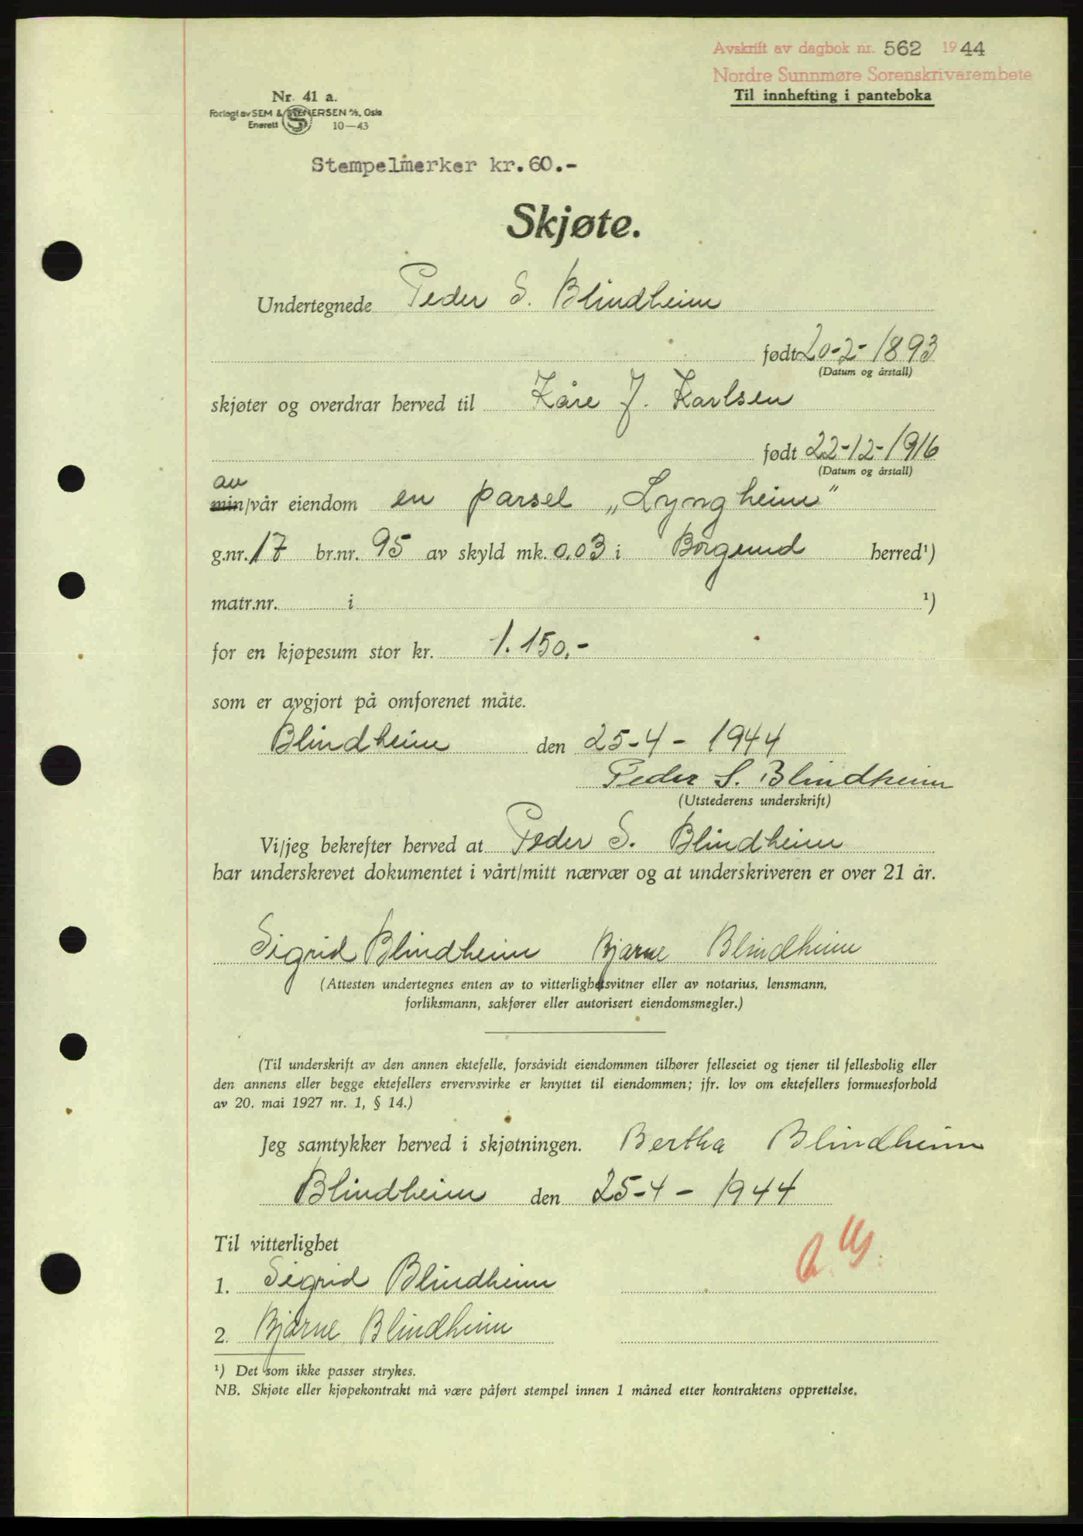 Avskrift av dagbok nr. 562 1944
Nordre Sunnmøre Sorenskrivarembete
Til innhefting i panteboka
Nr. 41 a.
Forlagt av SEM & STENERSEN A/S, Oslo
Enerett S 10—43
Stempelmerker kr.60.-
Skjøte.
Undertegnede Peder S. Blindheim
født 20-2-1893
(Datum og årstall)
skjøter og overdrar herved til Kåre J. Karlsen
født 22-12-1916
(Datum og årstall)
av
min/vår eiendom en parsel „Lyngheim"
g.nr. 17 br.nr. 95 av skyld mk. 0.03 i Borgund herred¹)
matr.nr. i ¹)
for en kjøpesum stor kr. 1.150.-
som er avgjort på omforenet måte.
Blindheim den 25-4-1944
Peder S. Blindheim
(Utstederens underskrift)
Vi/jeg bekrefter herved at Peder S. Blindheim
har underskrevet dokumentet i vårt/mitt nærvær og at underskriveren er over 21 år.
Sigrid Blindheim Bjarne Blindheim
(Attesten undertegnes enten av to vitterlighetsvitner eller av notarius, lensmann,
forliksmann, sakfører eller autorisert eiendomsmegler.)
(Til underskrift av den annen ektefelle, forsåvidt eiendommen tilhører felleseiet og tjener til fellesbolig eller
den annens eller begge ektefellers ervervsvirke er knyttet til eiendommen; jfr. lov om ektefellers formuesforhold
av 20. mai 1927 nr. 1, § 14.)
Jeg samtykker herved i skjøtningen. Bertha Blindheim
Blindheim den 25-4-1944
Til vitterlighet
1. Sigrid Blindheim
2. Bjarne Blindheim
¹) Det som ikke passer strykes.
NB. Skjøte eller kjøpekontrakt må være påført stempel innen 1 måned etter kontraktens opprettelse.